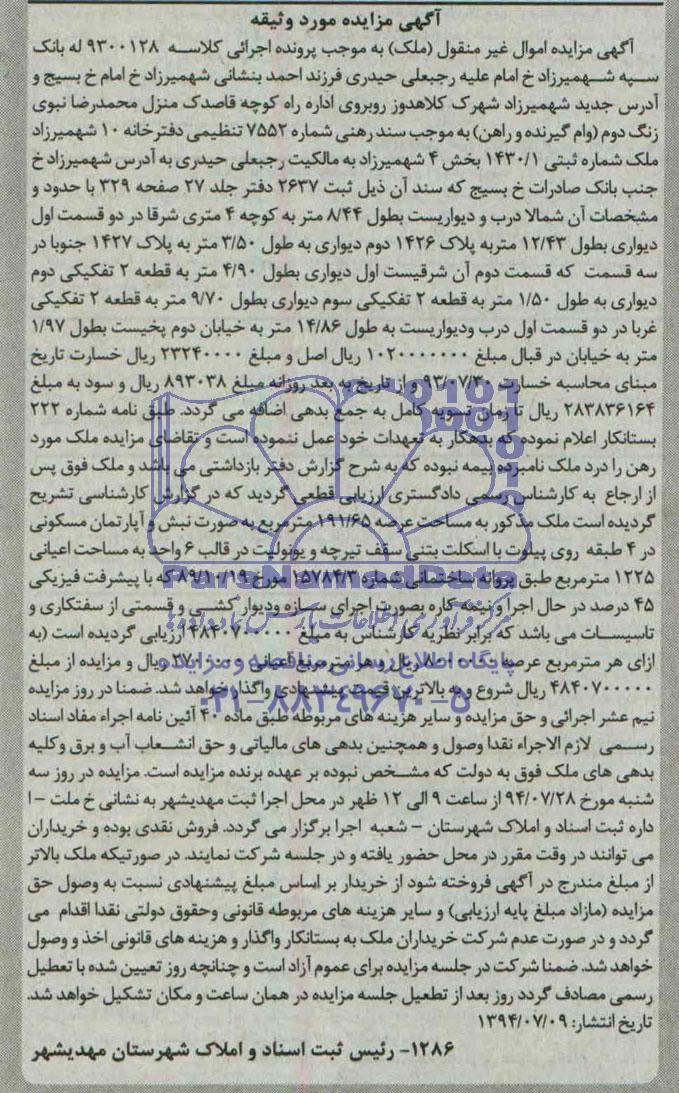 آگهی مزایده مورد وثیقه
آگهی مزایده اموال غیر منقول (ملک) به موجب پرونده اجرائی کلاسه ۹۳۰۰۱۲۸ له بانک
سپه شهمیرزاد خ امام علیه رجبعلی حیدری فرزند احمد بنشانی شهمیرزاد خ امام خ بسیج و
آدرس جدید شهمیرزاد شهرک کلاهدوز روبروی اداره راه کوچه قاصدک منزل محمدرضا نبوی
زنگ دوم (وام گیرنده و راهن) به موجب سند رهنی شماره ۷۵۵۲ تنظیمی دفترخانه ۱۰ شهمیرزاد
ملک شماره ثبتی ۱۴۳۰/۱ بخش ۴ شهمیرزاد به مالکیت رجبعلی حیدری به آدرس شهمیرزاد خ
جنب بانک صادرات خ بسیج که سند آن ذیل ثبت ۲۶۳۷ دفتر جلد ۲۷ صفحه ۳۲۹ با حدود و
مشخصات آن شمالا درب و دیواریست بطول ۸/۴۴ متر به کوچه ۴ متری شرقا در دو قسمت اول
دیواری بطول ۱۲/۴۳ متربه پلاک ۱۴۲۶ دوم دیواری به طول ۳/۵۰ متر به پلاک ۱۴۲۷ جنوبا در
سه قسمت که قسمت دوم آن شرقیست اول دیواری بطول ۴/۹۰ متر به قطعه ۲ تفکیکی دوم
دیواری به طول ۱/۵۰ متر به قطعه ۲ تفکیکی سوم دیواری بطول ۹/۷۰ متر به قطعه ۲ تفکیکی
غربا در دو قسمت اول درب ودیواریست به طول ۱۴/۸۶ متر به خیابان دوم پخیست بطول ۱/۹۷
متر به خیابان در قبال مبلغ ۱۰۲۰۰۰۰۰۰۰ ریال اصل و مبلغ ۲۳۲۴۰۰۰۰ ریال خسارت تاریخ
مبنای محاسبه خسارت ۹۳/۰۷/۲۰ و از تاریخ به بعد روزانه مبلغ ۸۹۳۰۳۸ ریال و سود به مبلغ
۲۸۳۸۳۶۱۶۴ ریال تا زمان تسویه کامل به جمع بدهی اضافه می گردد. طبق نامه شماره ۲۲۲
بستانکار اعلام نموده که بدهکار به تعهدات خود عمل ننموده است و تقاضای مزایده ملک مورد
رهن را درد ملک نامبرده بیمه نبوده که به شرح گزارش دفتر بازداشتی می باشد و ملک فوق پس
از ارجاع به کارشناس رسمی دادگستری ارزیابی قطعی گردید که در گزارش کارشناسی تشریح
گردیده است ملک مذکور به مساحت عرصه ۱۹۱/۶۵ مترمربع به صورت نبش و آپارتمان مسکونی
در ۴ طبقه روی پیلوت با اسکلت بتنی سقف تیرچه و یونولیت در قالب ۶ واحد به مساحت اعیانی
۱۲۲۵ مترمربع طبق پروانه ساختمانی شماره ۱۵۷۸۴/۳ مورخ ۸۹/۱۰/۱۹ که با پیشرفت فیزیکی
۴۵ درصد در حال اجرا و نیمه کاره بصورت اجرای سازه ودیوار کشی و قسمتی از سفتکاری و
تاسیسات می باشد که برابر نظریه کارشناس به مبلغ ۴۸۴۰۷۰۰۰۰۰ ارزیابی گردیده است (به
ازای هر مترمربع عرصه ریال و هر مترمربع اعیانی ریال و مزایده از مبلغ
۴۸۴۰۷۰۰۰۰۰ ریال شروع و به بالاترین قیمت پیشنهادی واگذار خواهد شد. ضمنا در روز مزایده
نیم عشر اجرائی و حق مزایده و سایر هزینه های مربوطه طبق ماده ۴۰ آئین نامه اجراء مفاد اسناد
رسمی لازم الاجراء نقدا وصول و همچنین بدهی های مالیاتی و حق انشعاب آب و برق وکلیه
بدهی های ملک فوق به دولت که مشخص نبوده بر عهده برنده مزایده است. مزایده در روز سه
شنبه مورخ ۹۴/۰۷/۲۸ از ساعت ۹ الی ۱۲ ظهر در محل اجرا ثبت مهدیشهر به نشانی خ ملت – ا
داره ثبت اسناد و املاک شهرستان – شعبه اجرا برگزار می گردد. فروش نقدی بوده و خریداران
می توانند در وقت مقرر در محل حضور یافته و در جلسه شرکت نمایند. در صورتیکه ملک بالاتر
از مبلغ مندرج در آگهی فروخته شود از خریدار بر اساس مبلغ پیشنهادی نسبت به وصول حق
مزایده (مازاد مبلغ پایه ارزیابی) و سایر هزینه های مربوطه قانونی وحقوق دولتی نقدا اقدام می
گردد و در صورت عدم شرکت خریداران ملک به بستانکار واگذار و هزینه های قانونی اخذ و وصول
خواهد شد. ضمنا شرکت در جلسه مزایده برای عموم آزاد است و چنانچه روز تعیین شده با تعطیل
رسمی مصادف گردد روز بعد از تطعیل جلسه مزایده در همان ساعت و مکان تشکیل خواهد شد.
تاریخ انتشار: ۱۳۹۴/۰۷/۰۹
۱۲۸۶- رئیس ثبت اسناد و املاک شهرستان مهدیشهر
ParsNamadData
پایگاه اطلاع رسانی مناقصه و مزایده
۰۲۱-۸۸۳۴۹۶۷۰-۵